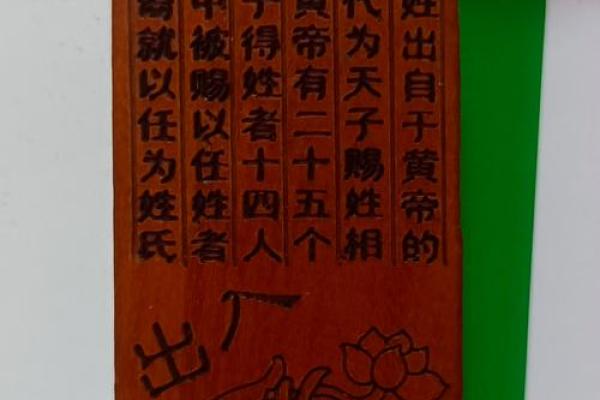 姓出自于黄帝的
代为天子赐姓相
黄帝有二十五个
子得姓者十四人
中被赐以任姓者
裔就以任为姓氏
出入